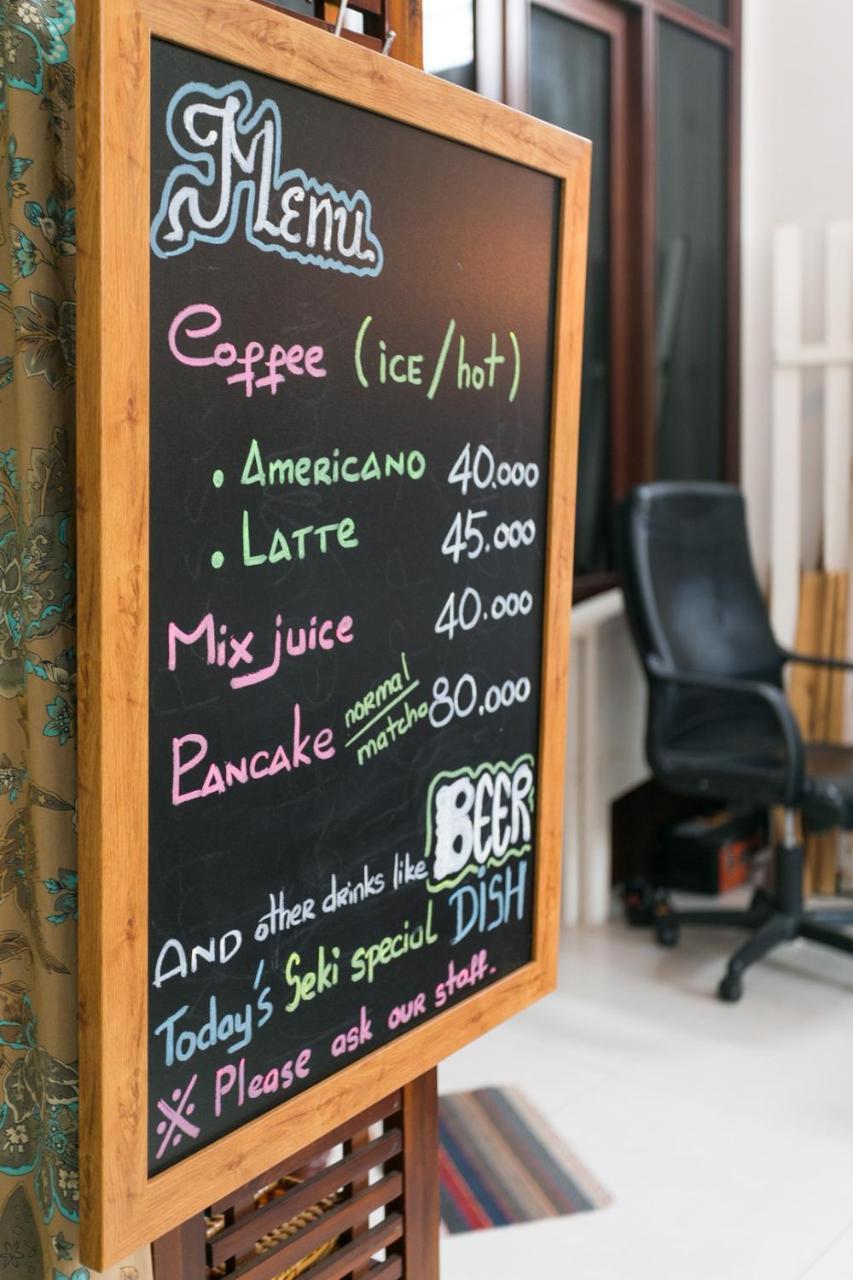 Menu
Coffee (ice/hot)
• Americano 40.000
• Latte 45.000
Mix juice 40.000
Pancake normal/matcha 80.000
And other drinks like BEER
Today's Seki special DISH
※ Please ask our staff.